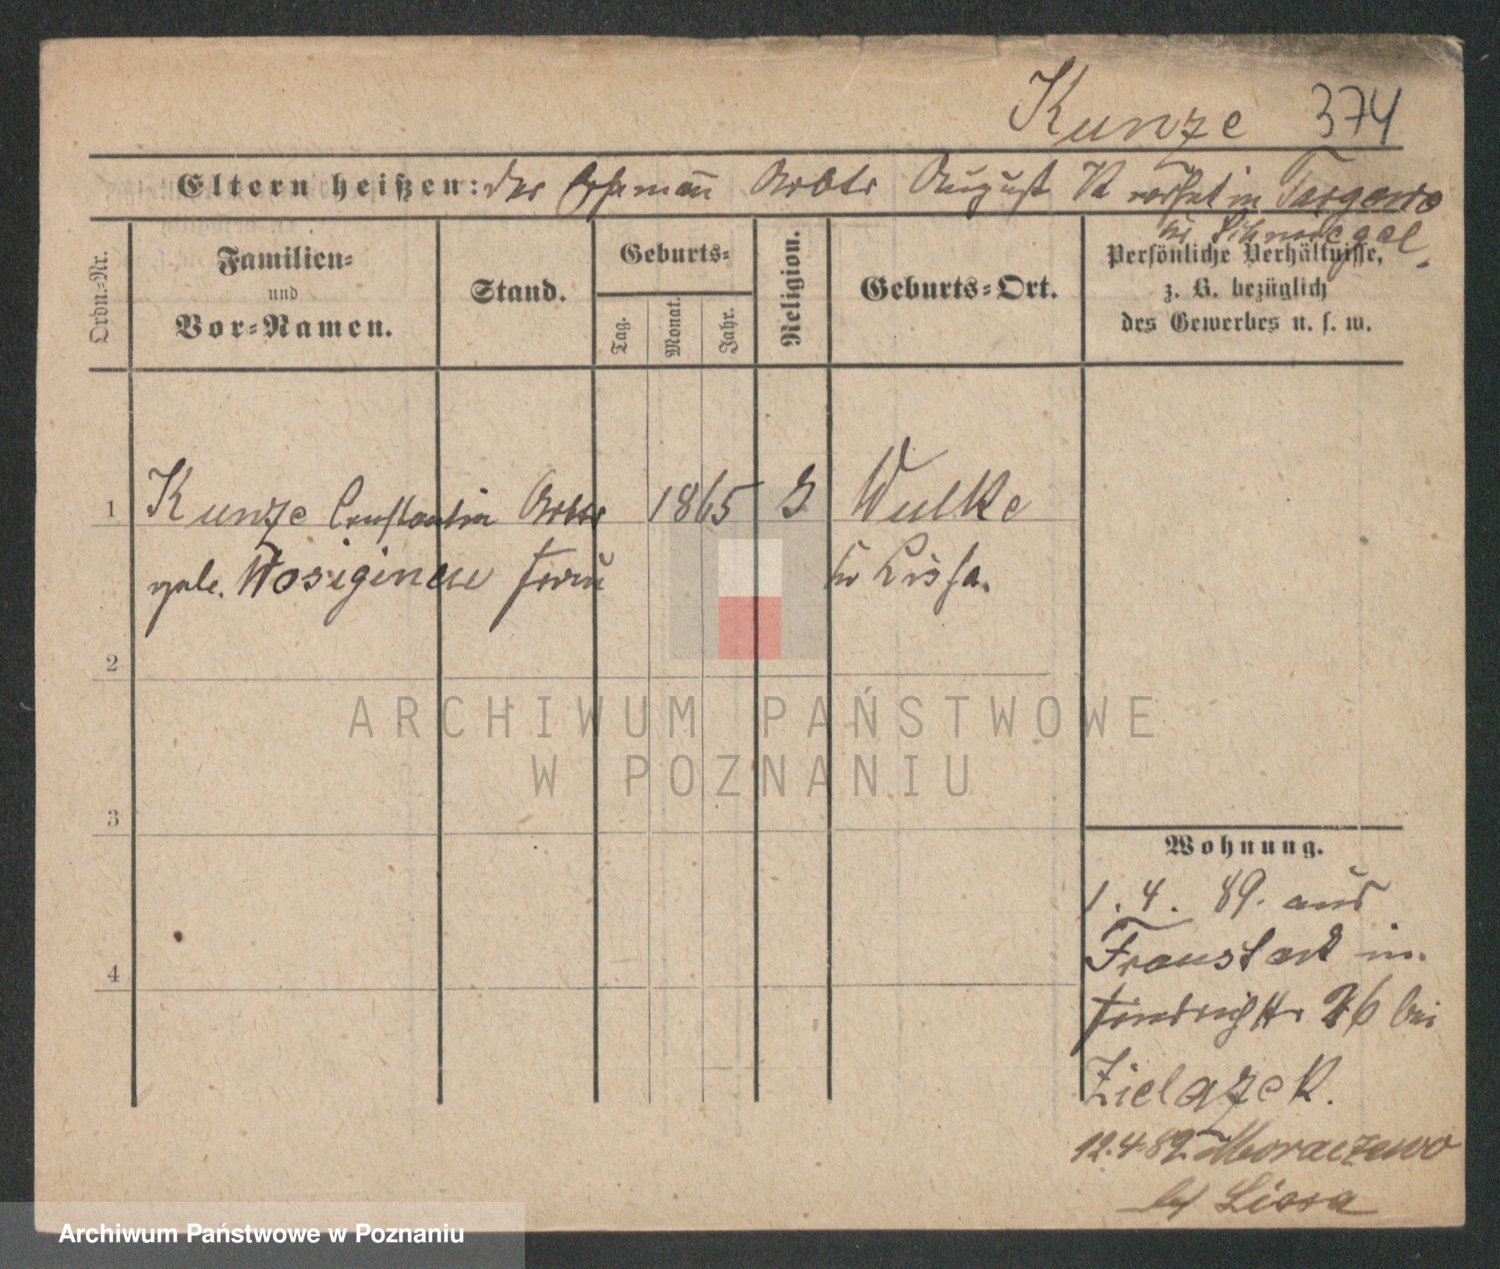 Kunze 374
Eltern heißen: der Ehemann Arbtr August K wohnt in Targowo
bei
Ordn.-Nr.
Familien-
und
Vor-Namen.
Stand.
Geburts-
Tag.
Monat.
Jahr.
Religion.
Geburts-Ort.
Persönliche Verhältnisse,
z. B. bezüglich
des Gewerbes u. s. w.
1 Kunze Constantin Arbtr 1865 Wulke
gebr. frau Lissa.
2
3
4
Wohnung.
1. 4. 89. aus
Fraustadt in
26 bei
Zielazek.
12.4.89 Moraczewo
bei Lissa
ARCHIWUM PAŃSTWOWE
W POZNANIU
Archiwum Państwowe w Poznaniu